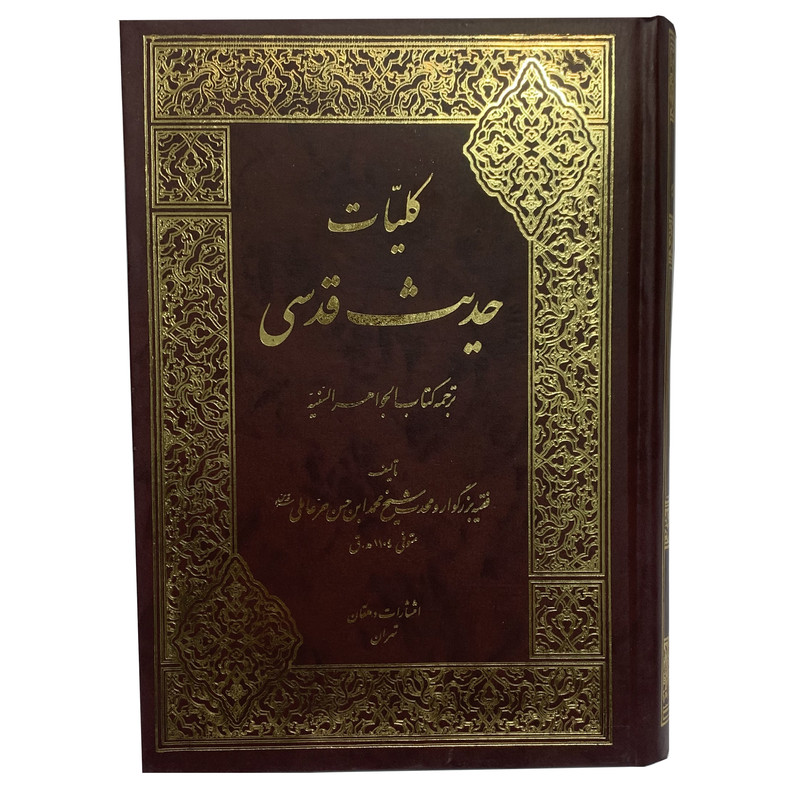 کلیّات
حدیث قدسی
ترجمه کتاب الجواهر السنیة
تألیف
فقیه بزرگوار و محدث شیخ محمد ابن حسن حر عاملی
متوفی ۱۱۰٤ ه.ق
انتشارات دهقان
تهران